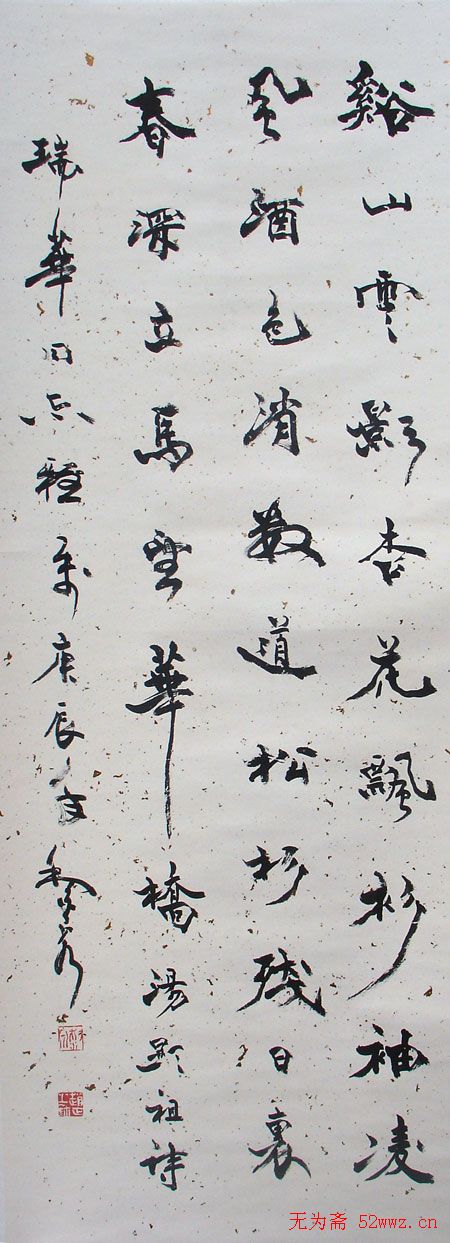 谿山雲影杏花飄衫袖凌
風酒色消數道松杉殘日裏
春深立馬望華橋湯顯祖詩
瑞華同志雅屬庚辰年
无为斋 52wwz.cn